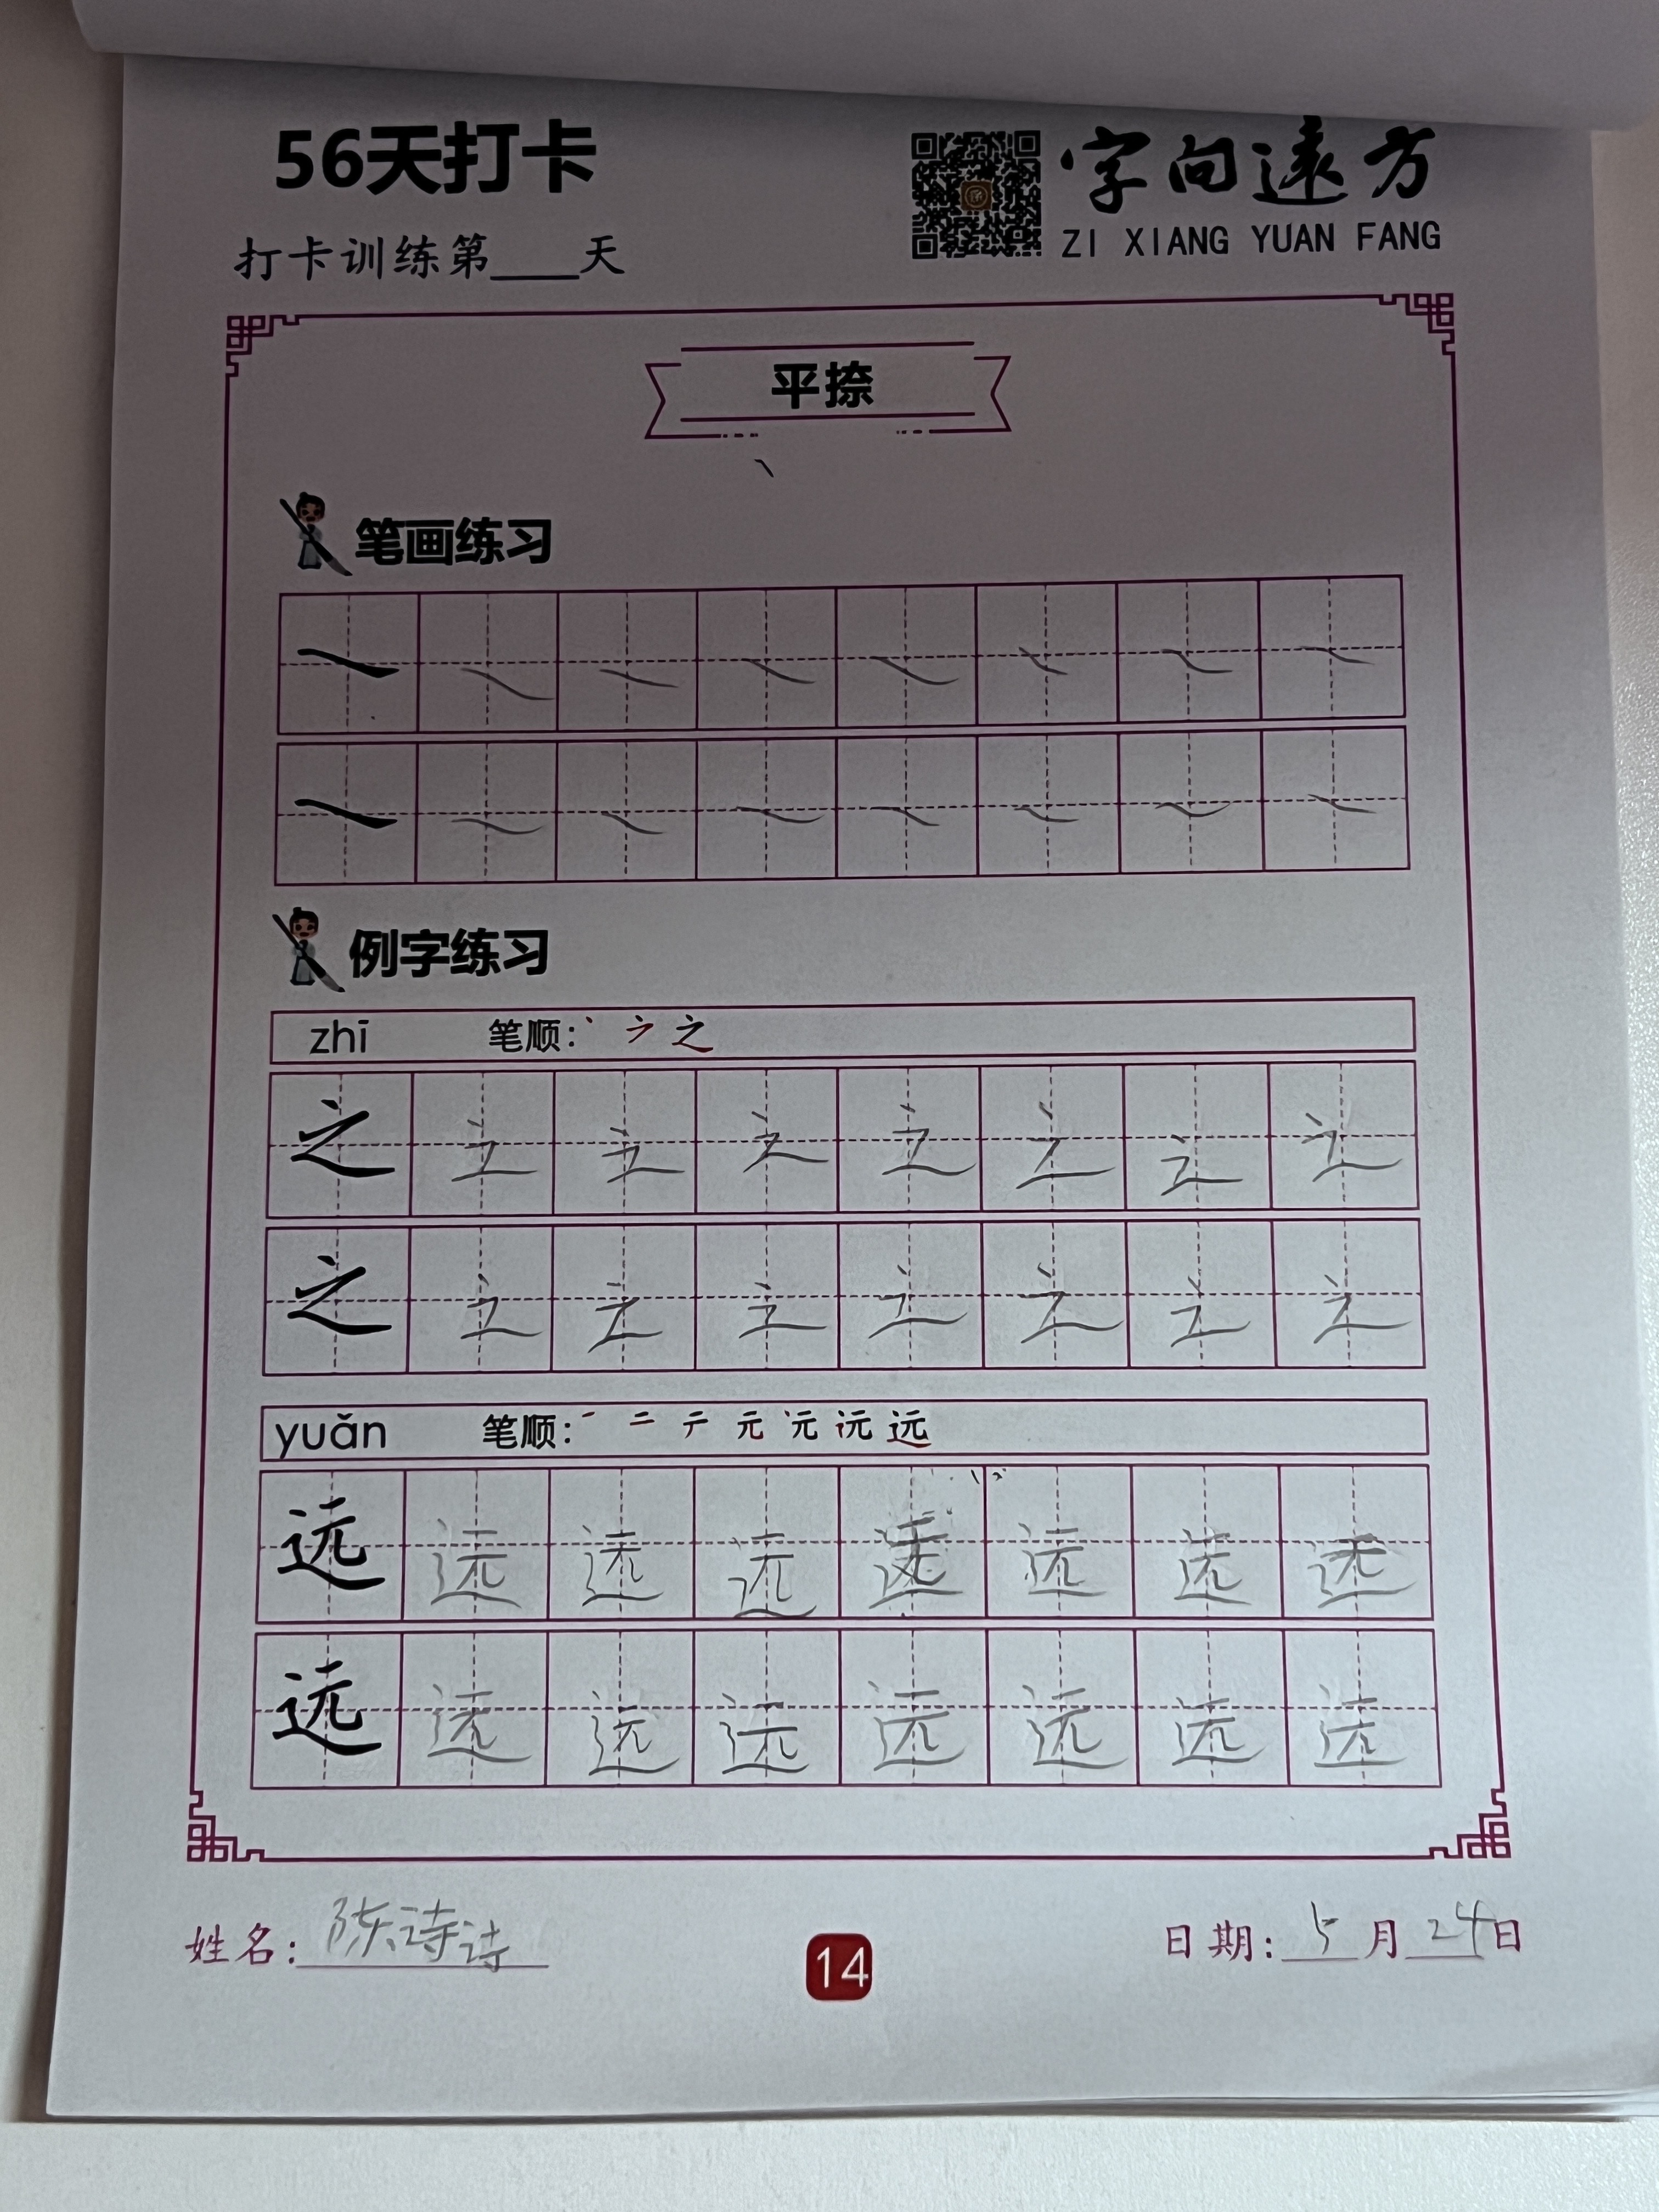 56天打卡
字向遠方
ZI XIANG YUAN FANG
打卡训练第____天
平捺
笔画练习
例字练习
zhī 笔顺： 丶 ㇇ 之
之 之 之 之 之 之 之 之
之 之 之 之 之 之 之 之
yuǎn 笔顺： 一 二 テ 元 沅 远
远 远 远 远 远 远 远 远
远 远 远 远 远 远 远 远
姓名：陈诗诗
14
日期：5月24日